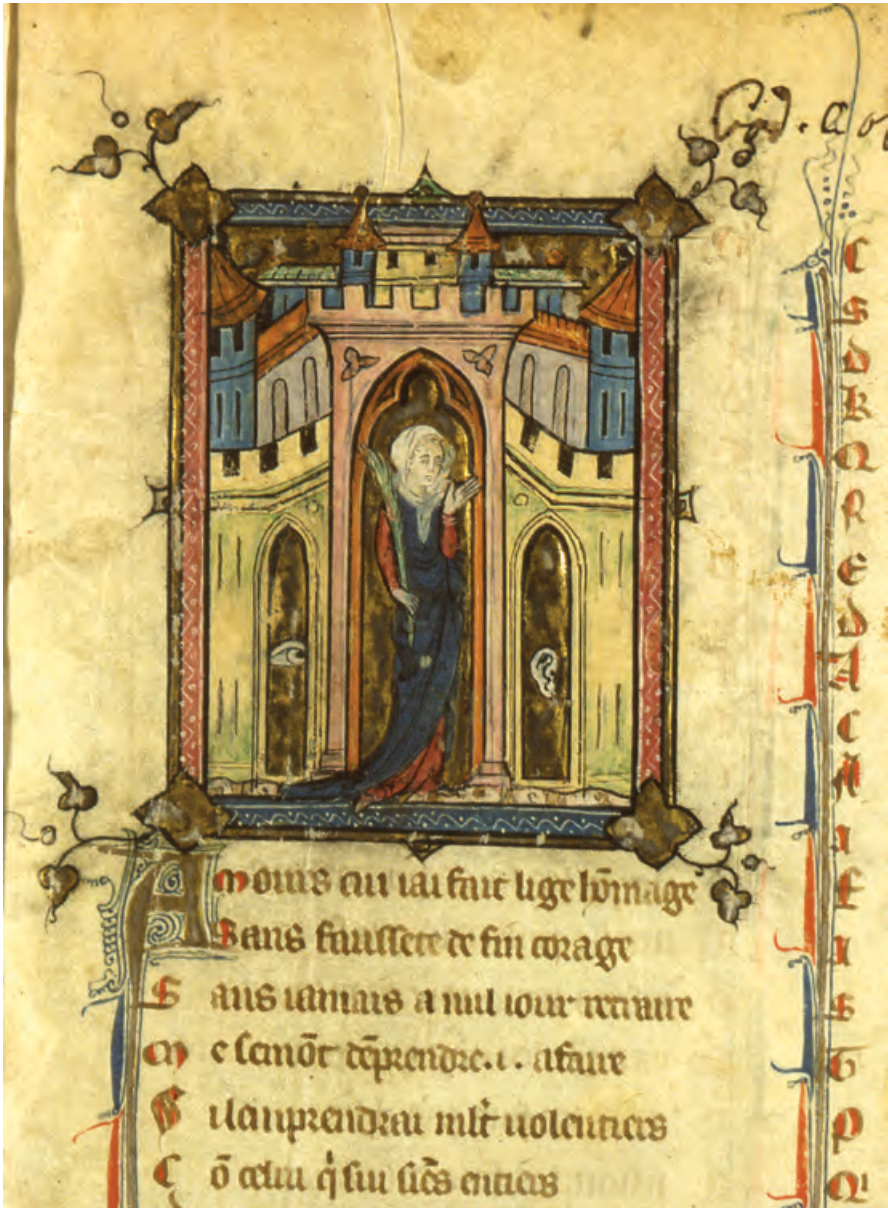 Amours cui iai fait lige hōmage
Sans faussete de fin corage
Sans iamais a nul iour retraire
Me semōt dēprendre .i. afaire
Si lanprendrai ml't uolentiers
Cō celui qⁱ sui siēs entiers